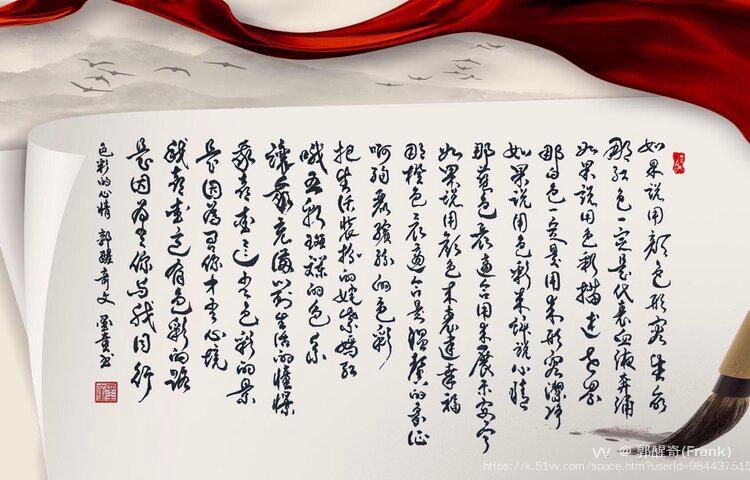 如果说用颜色形容生命
那红色一定是代表血液奔涌
如果说用色彩描述世界
那白色一定是用来形容洁净
如果说用色彩来评说心情
那蓝色最适合用来展示安宁
如果说用颜色来表达幸福
那橙色最适合是温馨的象征
啊绚丽缤纷的色彩
把生活装扮的姹紫嫣红
哦五彩斑斓的色系
让我充满对生活的憧憬
我喜爱这色彩的景
是因为有你才有心境
我喜爱这有色彩的路
是因为有你与我同行
色彩的心情 郭醒奇文 书
@郭醒奇(Frank)
https://k.51vv.com/space.htm?userId=984437515